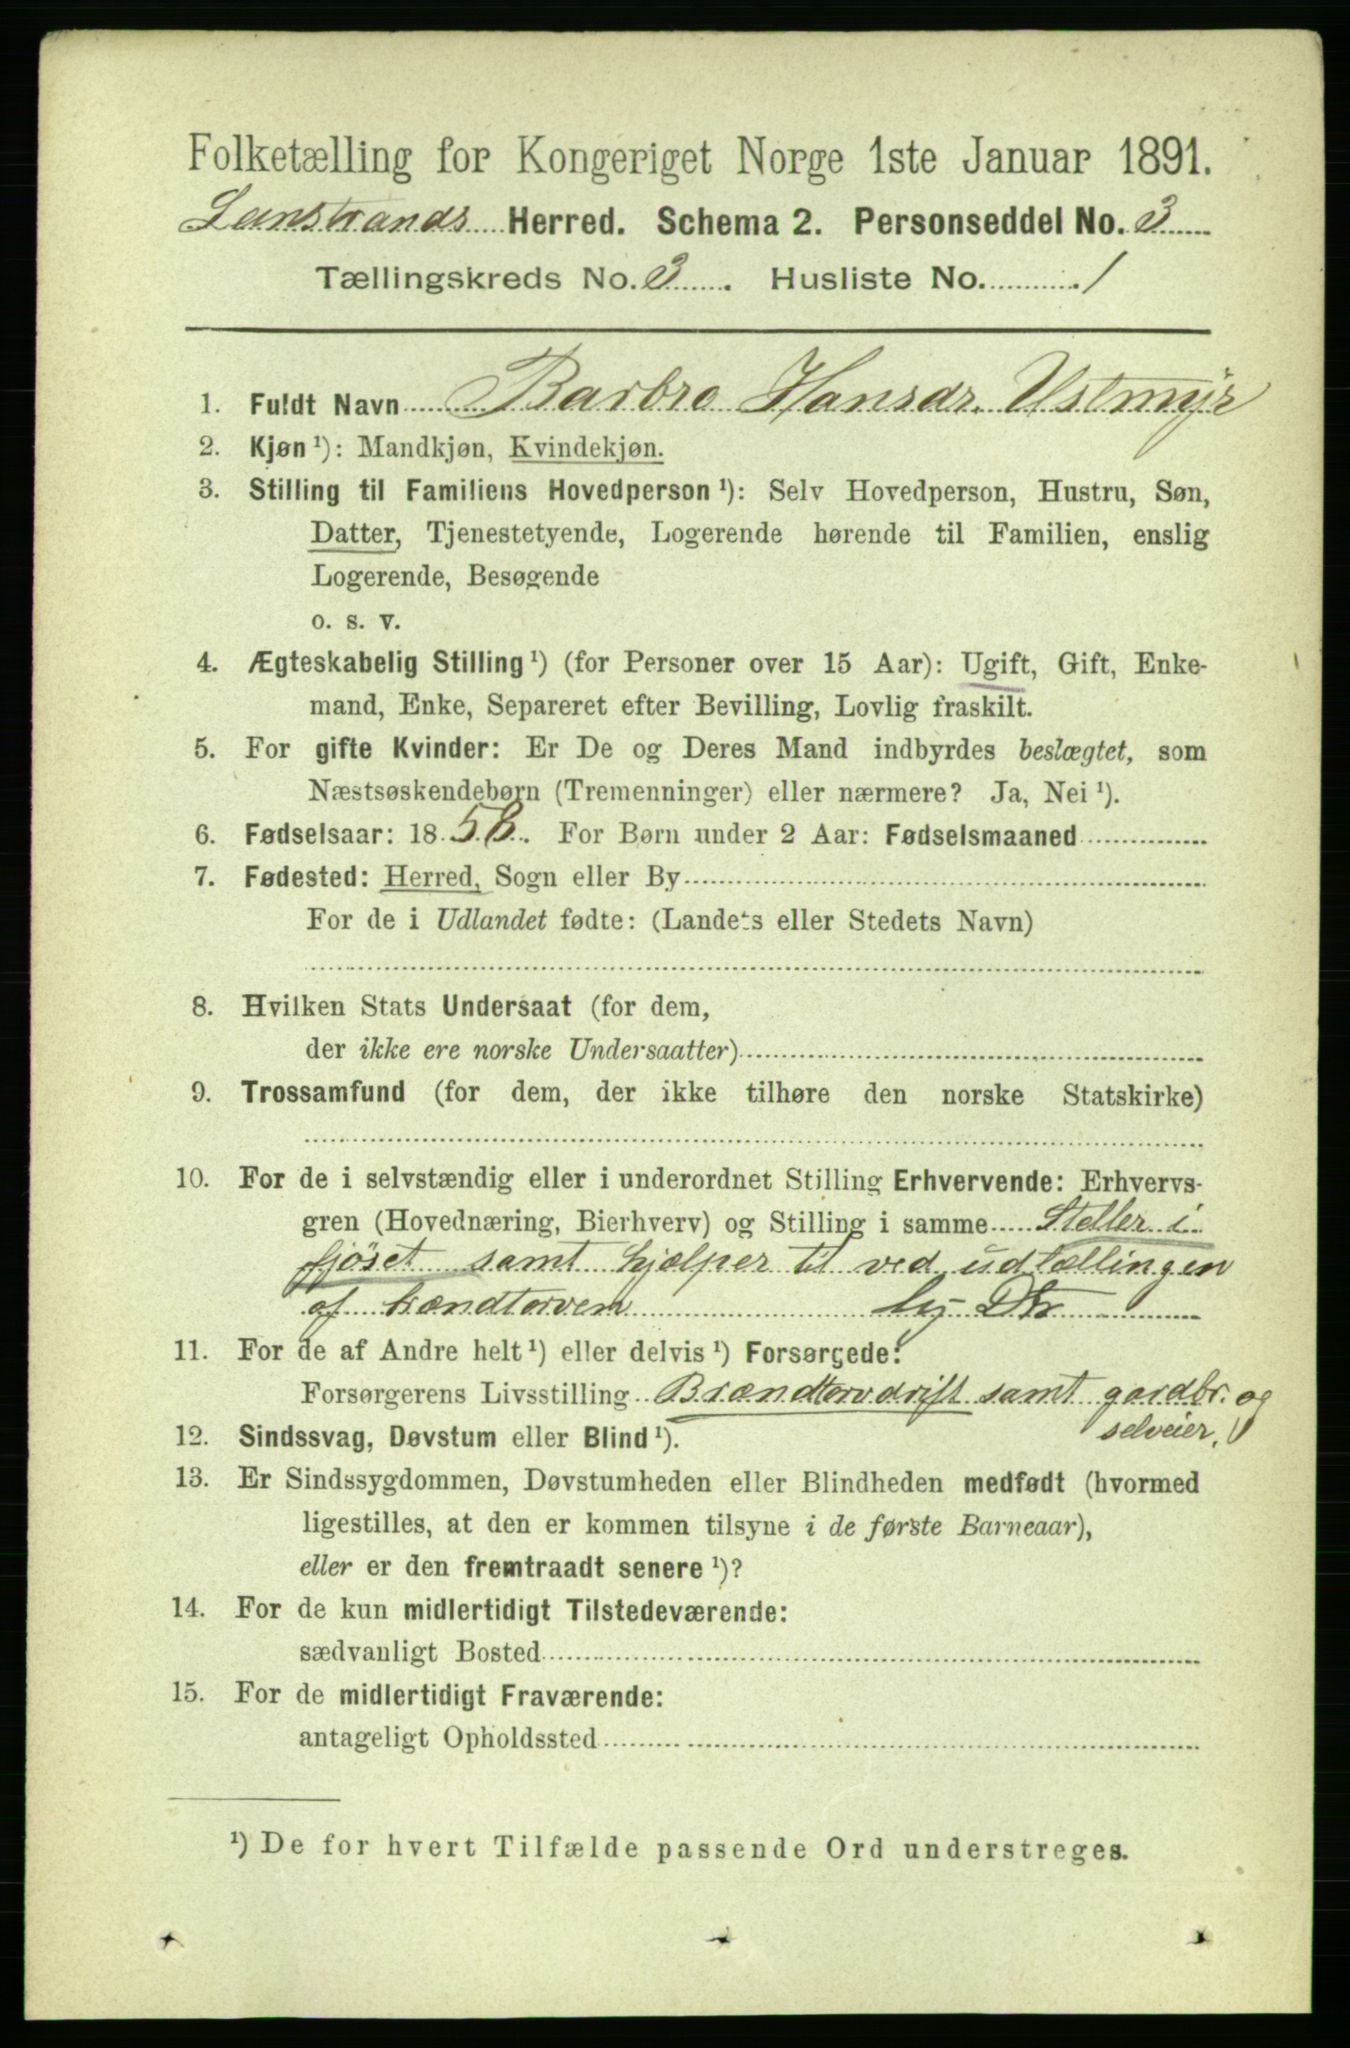 Folketælling for Kongeriget Norge 1ste Januar 1891.
Leinstrands Herred. Schema 2. Personseddel No. 3
Tællingskreds No. 3. Husliste No. 1
1. Fuldt Navn Barbro Hansdr. Ustmyr
2. Kjøn ¹): Mandkjøn, Kvindekjøn.
3. Stilling til Familiens Hovedperson ¹): Selv Hovedperson, Hustru, Søn,
Datter, Tjenestetyende, Logerende hørende til Familien, enslig
Logerende, Besøgende
o. s. v.
4. Ægteskabelig Stilling ¹) (for Personer over 15 Aar): Ugift, Gift, Enke-
mand, Enke, Separeret efter Bevilling, Lovlig fraskilt.
5. For gifte Kvinder: Er De og Deres Mand indbyrdes beslægtet, som
Næstsøskendebørn (Tremenninger) eller nærmere? Ja, Nei ¹).
6. Fødselsaar: 18 58. For Børn under 2 Aar: Fødselsmaaned
7. Fødested: Herred, Sogn eller By
For de i Udlandet fødte: (Landets eller Stedets Navn)
8. Hvilken Stats Undersaat (for dem,
der ikke ere norske Undersaatter)
9. Trossamfund (for dem, der ikke tilhøre den norske Statskirke)
10. For de i selvstændig eller i underordnet Stilling Erhvervende: Erhvervs-
gren (Hovednæring, Bierhverv) og Stilling i samme Steller i
fjöset samt hjælper til ved udtællingen
af brændtorven
11. For de af Andre helt ¹) eller delvis ¹) Forsørgede:
Forsørgerens Livsstilling Brændtorvdrift samt gardbr. og
selveier.
12. Sindssvag, Døvstum eller Blind ¹).
13. Er Sindssygdommen, Døvstumheden eller Blindheden medfødt (hvormed
ligestilles, at den er kommen tilsyne i de første Barneaar),
eller er den fremtraadt senere ¹)?
14. For de kun midlertidigt Tilstedeværende:
sædvanligt Bosted
15. For de midlertidigt Fraværende:
antageligt Opholdssted
¹) De for hvert Tilfælde passende Ord understreges.